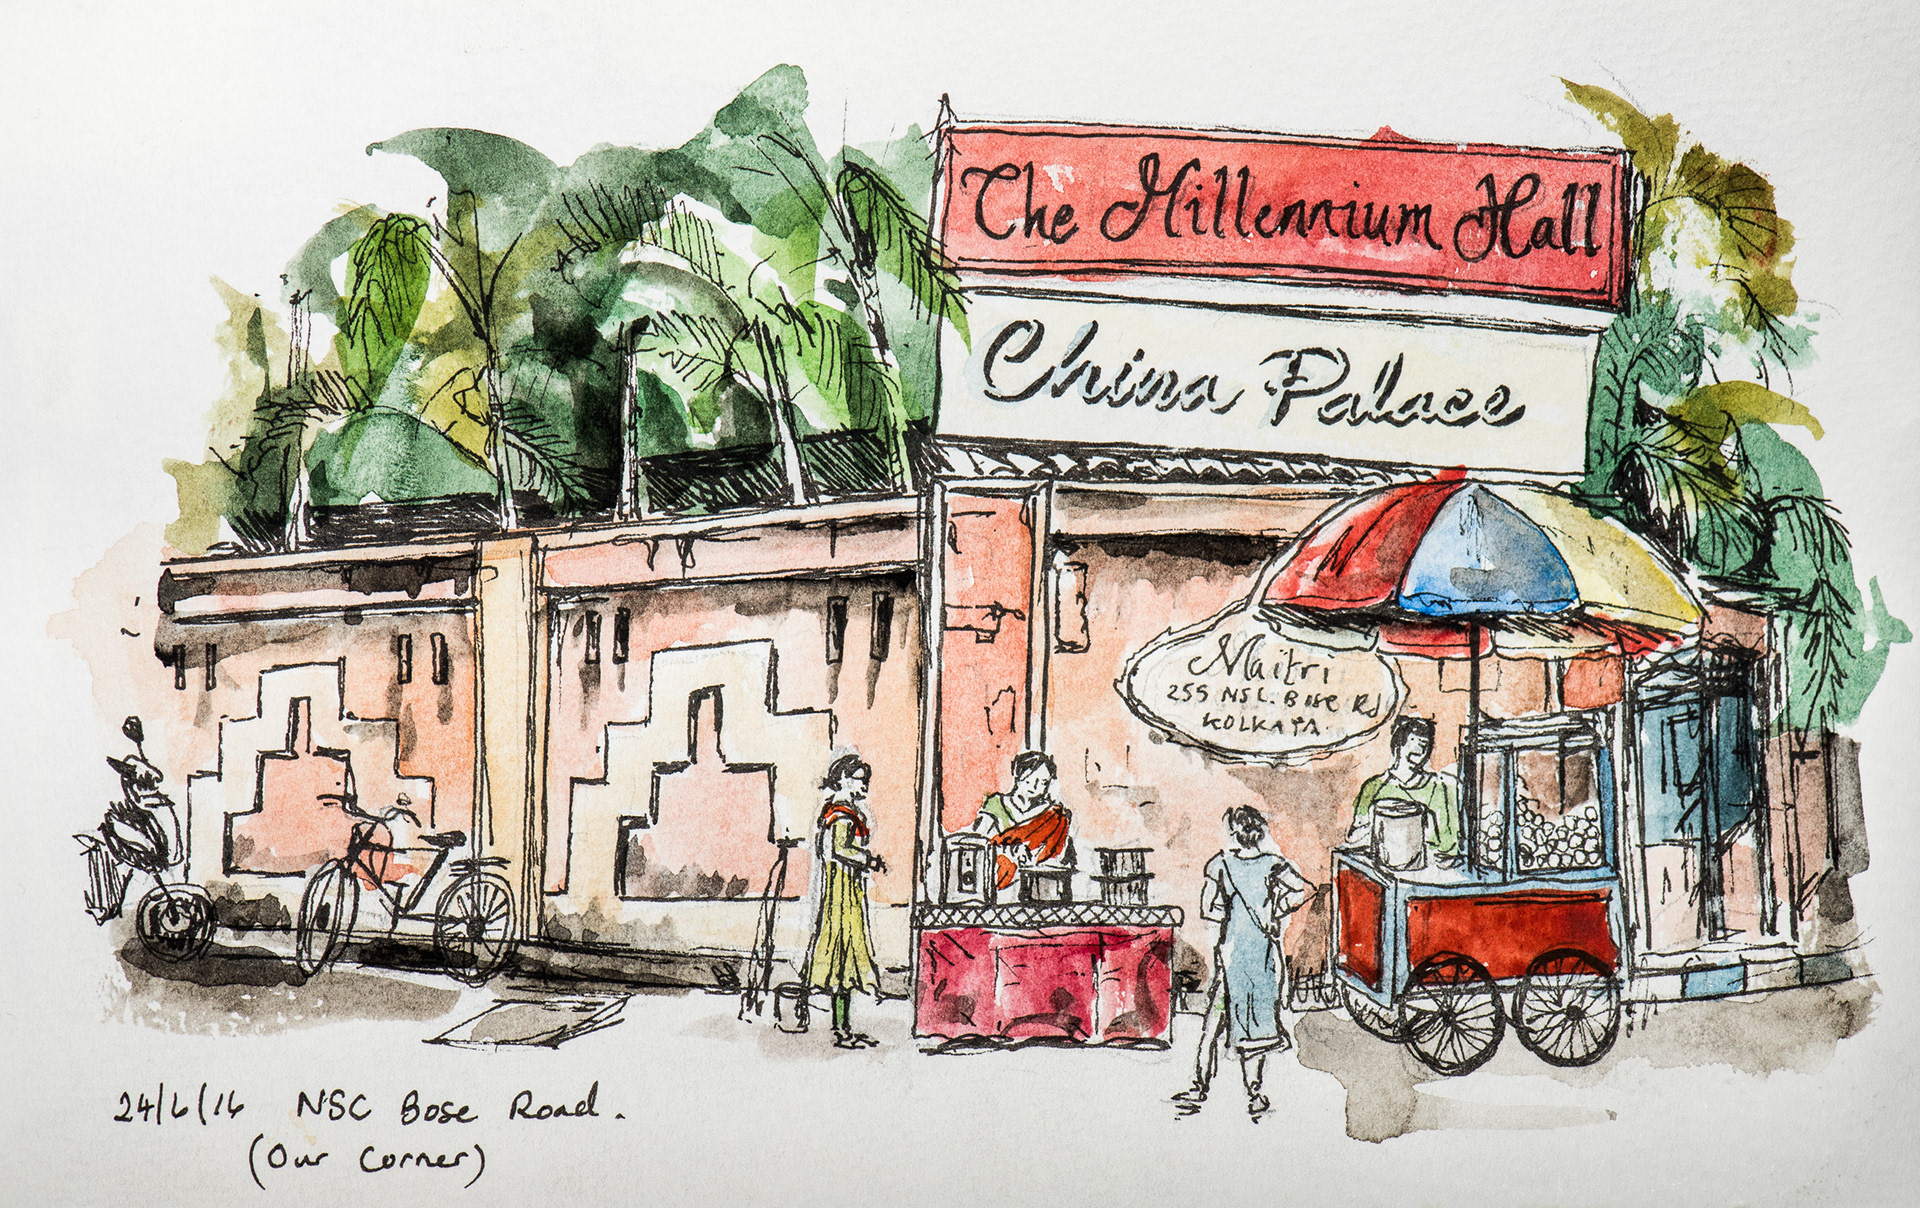 The Millennium Hall
China Palace
Maitri
255 NSC Bose Rd
KOLKATA.
24/6/16 NSC Bose Road.
(Our Corner)